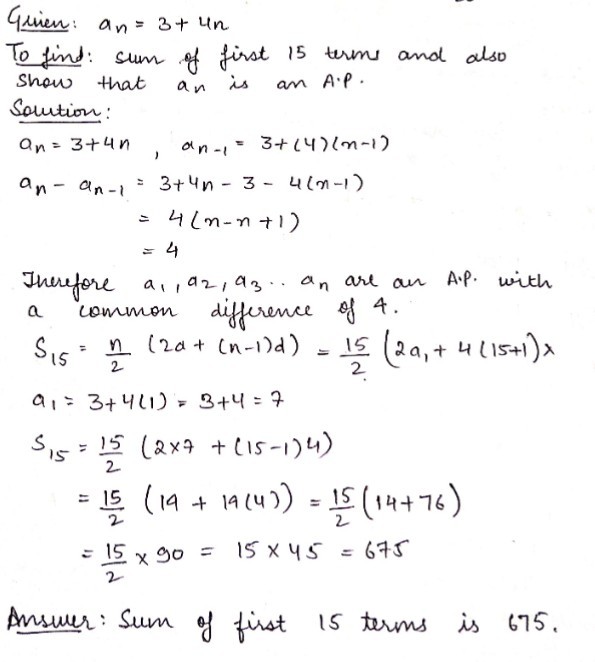 Given: an = 3 + 4n
To find: sum of first 15 terms and also
show that an is an A.P.
Solution:
an = 3+4n , an-1 = 3+(4)(n-1)
an - an-1 = 3+4n - 3 - 4(n-1)
= 4(n-n+1)
= 4
Therefore a1, a2, a3 .. an are an A.P. with
a common difference of 4.
S15 = n/2 (2a + (n-1)d) = 15/2 (2a1 + 4(15+1)x
a1 = 3+4(1) = 3+4 = 7
S15 = 15/2 (2x7 + (15-1)4)
= 15/2 (14 + 19(4)) = 15/2 (14+76)
= 15/2 x 90 = 15 x 45 = 675
Answer: Sum of first 15 terms is 675.